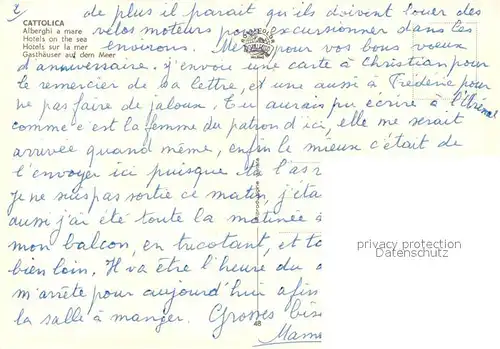 2/ de plus il parait qu'ils doivent louer des
CATTOLICA
Alberghi a mare
Hotels on the sea
Hotels sur la mer
Gasthäuser auf dem Meer
vélos moteurs pour excursionner dans les
environs. Merci pour vos bons voeux
d'anniversaire. j'envoie une carte à Christian pour
le remercier de sa lettre, et une aussi à Frédéric pour
ne pas faire de jaloux. Tu aurais pu écrire à l'
comme c'est la femme du patron d'ici, elle me serait
arrivée quand même, enfin le mieux c'était de
l'envoyer ici puisque tu l'as r
Je ne suis pas sortie ce matin, j'éta
aussi j'ai été toute la matinée s
mon balcon, en tricotant, et to
bien loin. Il va être l'heure du
m'arrête pour aujourd'hui afin
la salle à manger. Grosses bise
Mam
48
privacy protection
Datenschutz